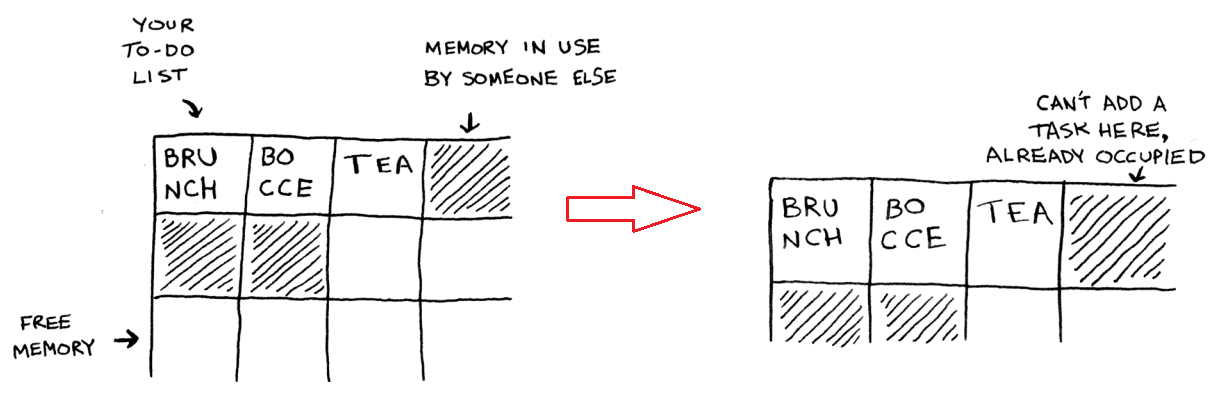 YOUR
TO-DO
LIST
MEMORY IN USE
BY SOMEONE ELSE
BRU
NCH
BO
CCE
TEA
FREE
MEMORY
CAN'T ADD A
TASK HERE,
ALREADY OCCUPIED
BRU
NCH
BO
CCE
TEA